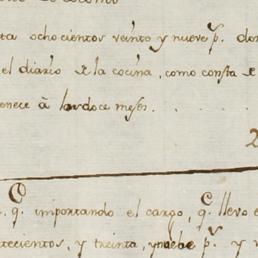 ta ochocientos veinto y nueve p.
el diario de la cocina, como consta de
enece à las doce meses. . . .
2
q. importando el cargo, q. llevo e
tecientos, y treinta, y nuebe p.s y